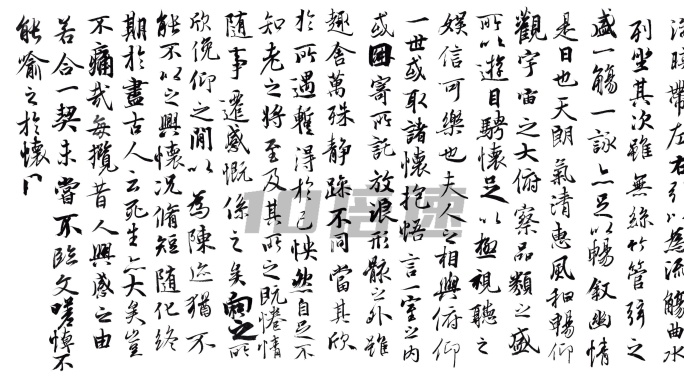 帶左右引以為流觴曲水
列坐其次雖無絲竹管弦之
盛一觴一詠亦足以暢敘幽情
是日也天朗氣清惠風和暢仰
觀宇宙之大俯察品類之盛
所以遊目騁懷足以極視聽之
娛信可樂也夫人之相與俯仰
一世或取諸懷抱悟言一室之內
或因寄所託放浪形骸之外雖
趣舍萬殊靜躁不同當其欣
於所遇暫得於己怏然自足不
知老之將至及其所之既惓情
隨事遷感慨係之矣向之所
欣俛仰之閒以為陳迹猶不
能不以之興懷況脩短隨化終
期於盡古人云死生亦大矣豈
不痛哉每攬昔人興感之由
若合一契未嘗不臨文嗟悼不
能喻之於懷